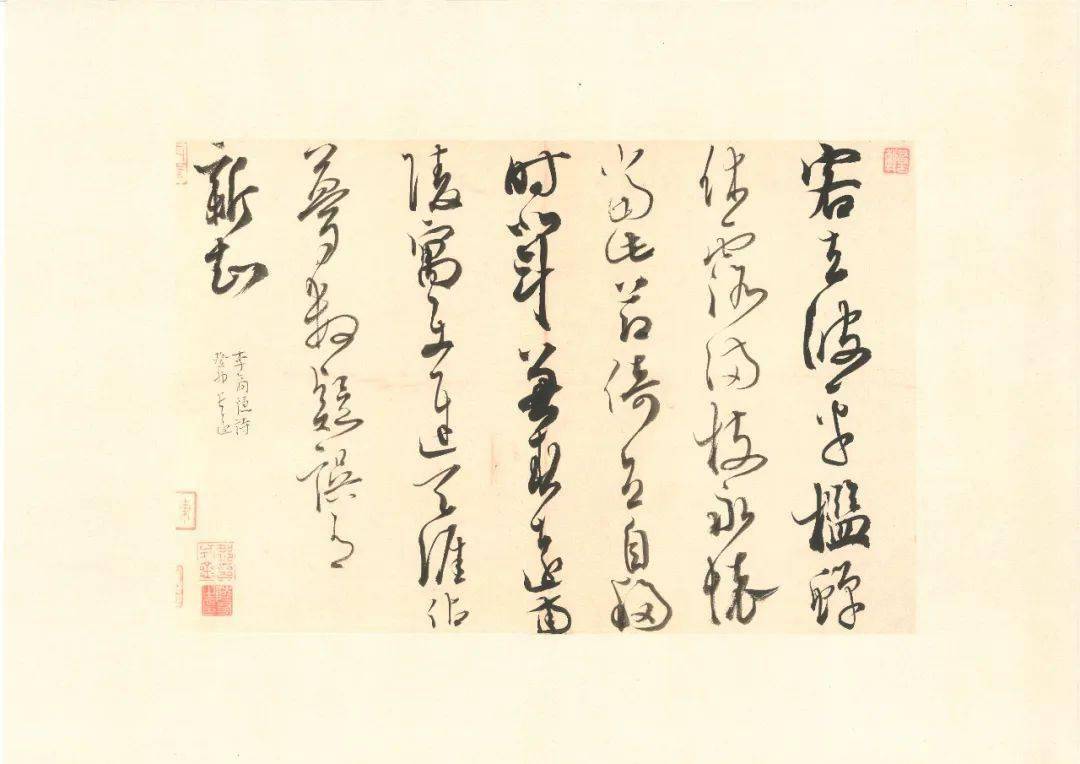 客去波平檻蟬
休露滿枝永懷
當此節倚立自移
時北斗兼春遠南
陵寓使遲天涯占
夢數疑誤有
新知
李商隱詩
癸卯